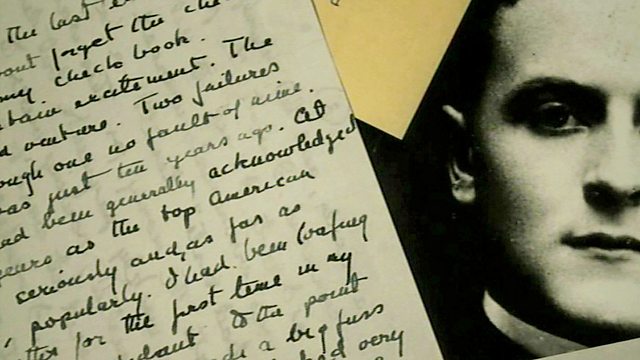 the last
forget the che
my check book.
excitement. The
venture. Two failures
ough one no fault of mine.
was just ten years ago. At
had been generally acknowledged
years as the top American
seriously and, as far as
popularly. I had been loafing
for the first time in my
to the point
a big fuss
had very